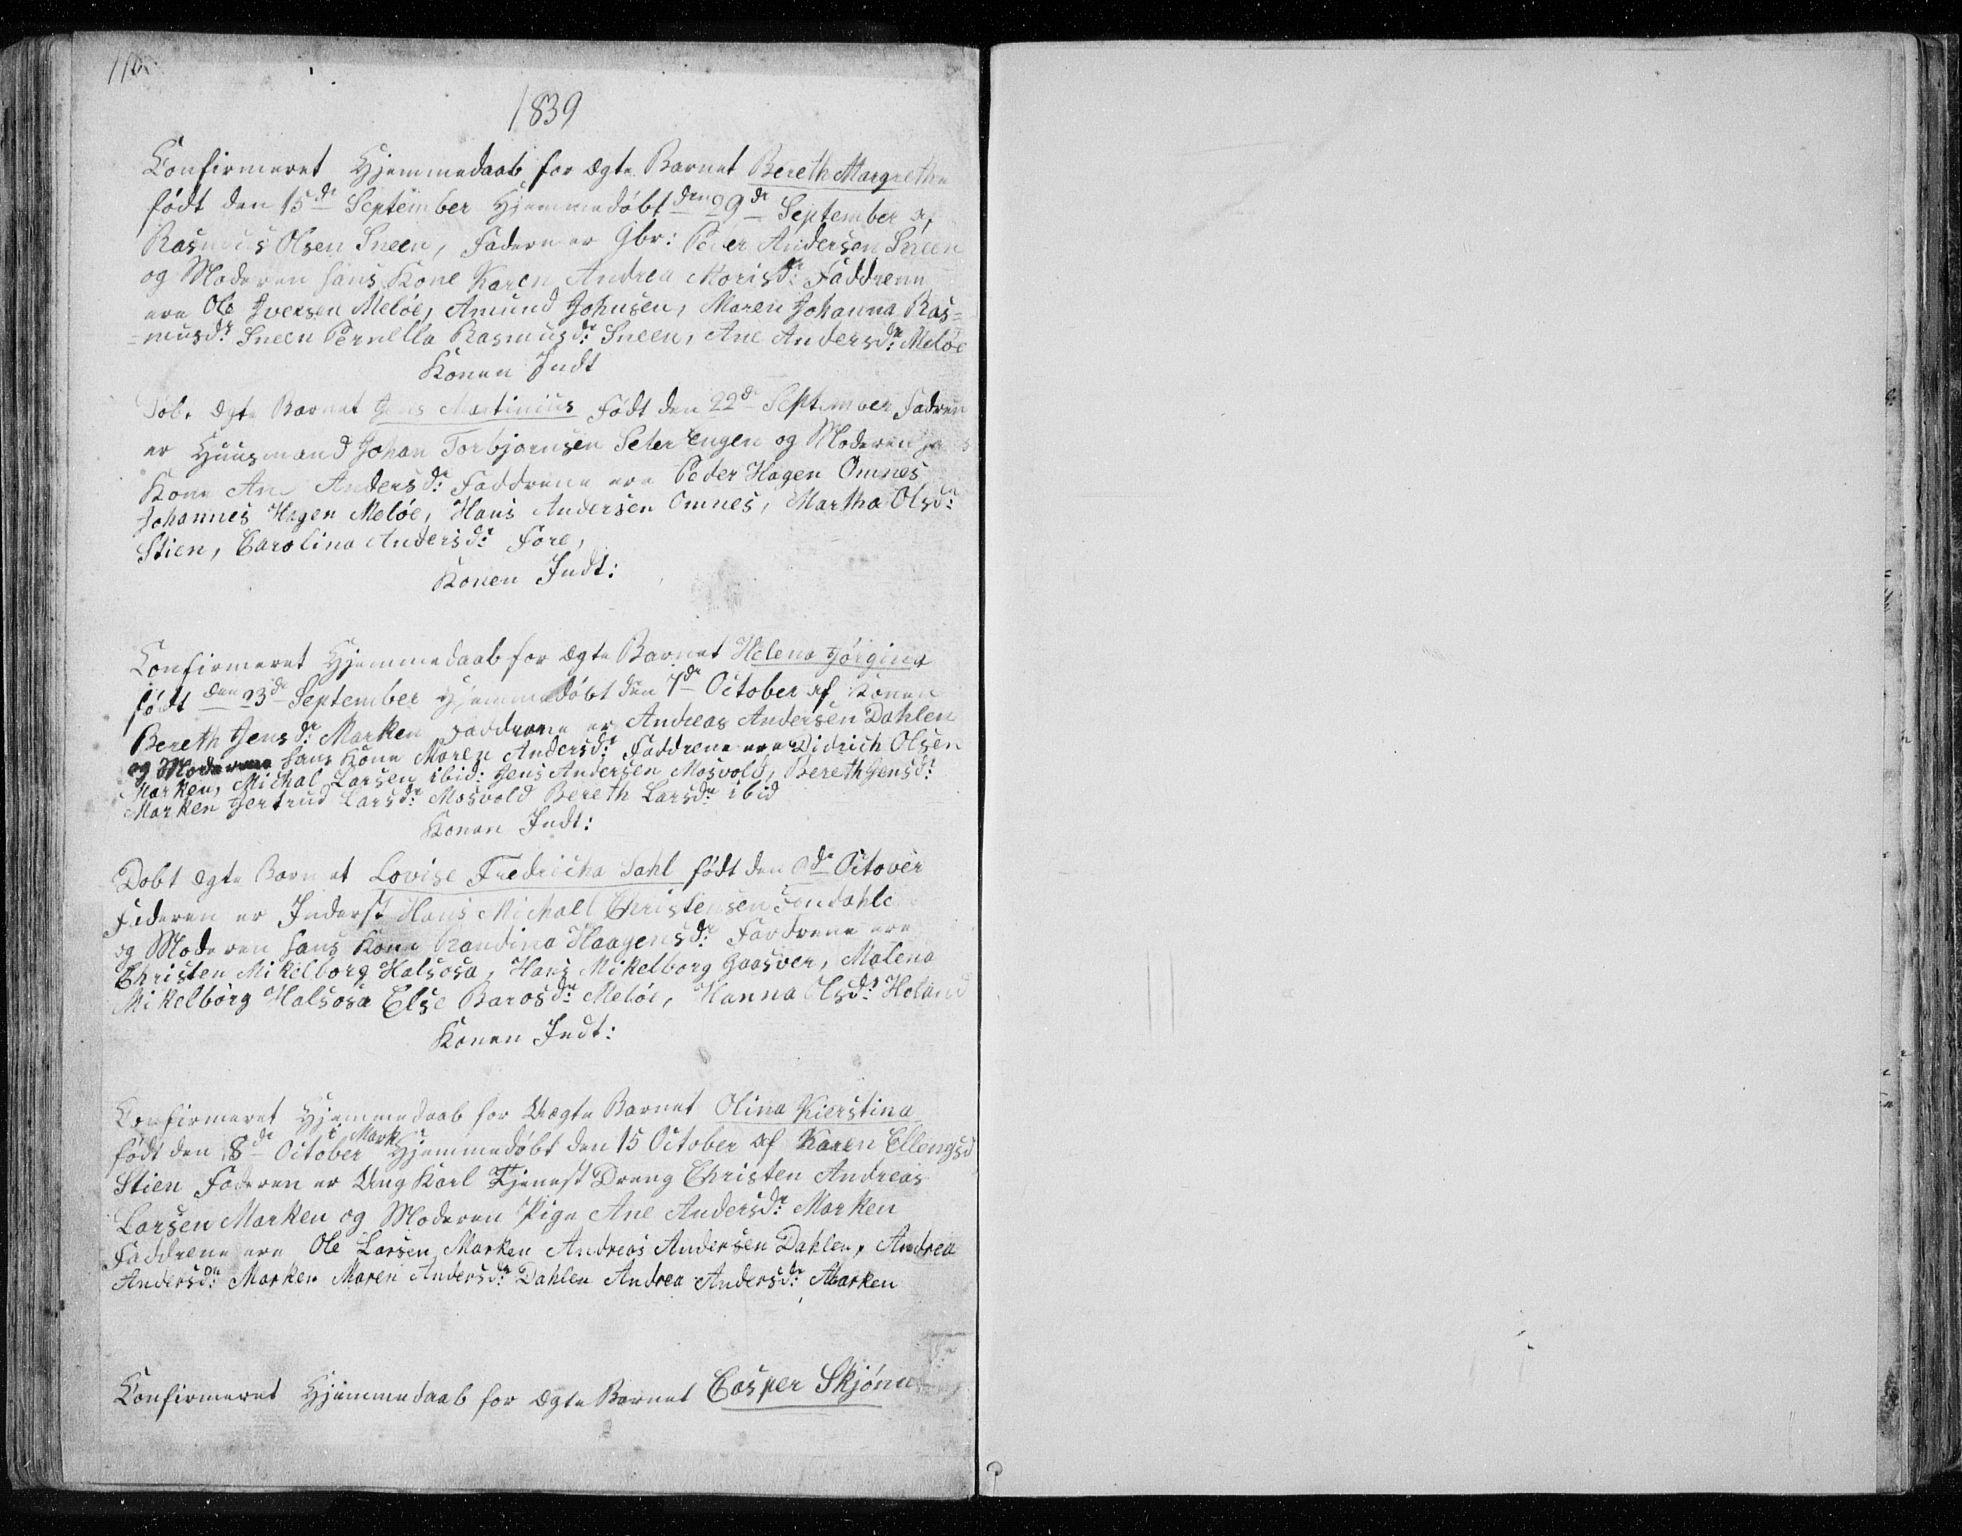 116
1839
Confirmeret Hjemmedaab for ægte Barnet Bereth Margrethe
født den 15de September Hjemmedøbt den 29de September af
Rasmus Olsen Sneen, Faderen er Gbr: Peder Andersen Sneen
og Moderen hans Kone Karen Andrea Morisdr Faddrene
ere Ole Iversen Meløe, Amund Johnsen, Maren Johanna Ras=
=musdr: Sneen Pernella Rasmusdr: Sneen, Ane Andersdr: Meløe
Konen Indt
Døbt ægte Barnet Jens Martinius født den 22de September Fadren
er Huusmand Johan Torbjornsen Seter engen og Moderen
Kone Ane Andersdr: Faddrene ere Peder Hagen Omnes
Johannes Hagen Meløe, Hans Andersen Omnes, Martha Olsdr:
Stien, Carolina Andersdr: Fore,
Konen Indt:
Confirmeret Hjemmedaab for ægte Barnet Helena Jørgina
født den 23de September Hjemmedøbt den 7de October af Konen
Bereth Jensdr: Marken Faddrene er Andreas Andersen Dahlen
og Moderen hans Kone Maren Andersdr: Faddrene ere Didrich Olsen
Marken, Michal Larsen ibid: Jens Andersen Mosvold, Bereth Jensdr
Marken Gertrud Larsdr: Mosvold Bereth Larsdr: ibid
Konen Indt:
Døbt ægte Barnet Lovise Fredricha Dahl født den de October
Faderen er Inderst Hans Michall Christensen
og Moderen hans Kone Randina Haagensdr: Faddrene ere
Christen Mikelborg Halsosa, Hans Mikelborg Gaasver, Malena
Mikelborg Halsosa Else Barosdr: Meløe, Hanna Olsdr: Holand
Konen Indt:
Confirmeret Hjemmedaab for Uægte Barnet Olina Kierstina
født den 8de October i Mark: Hjemmedøbt den 15 October af Karen Ellengsd
Stien Faderen er Ung Karl Tjenest Dreng Christen Andreas
Larsen Marken og Moderen Pige Ane Andersdr: Marken
Faddrene ere Ole Larsen Marken Andreas Andersen Dahlen, Andrea
Andersdr: Marken Maren Andersdr: Dahlen Andrea Andersdr: Marken
Confirmeret Hjemmedaab for ægte Barnet Casper